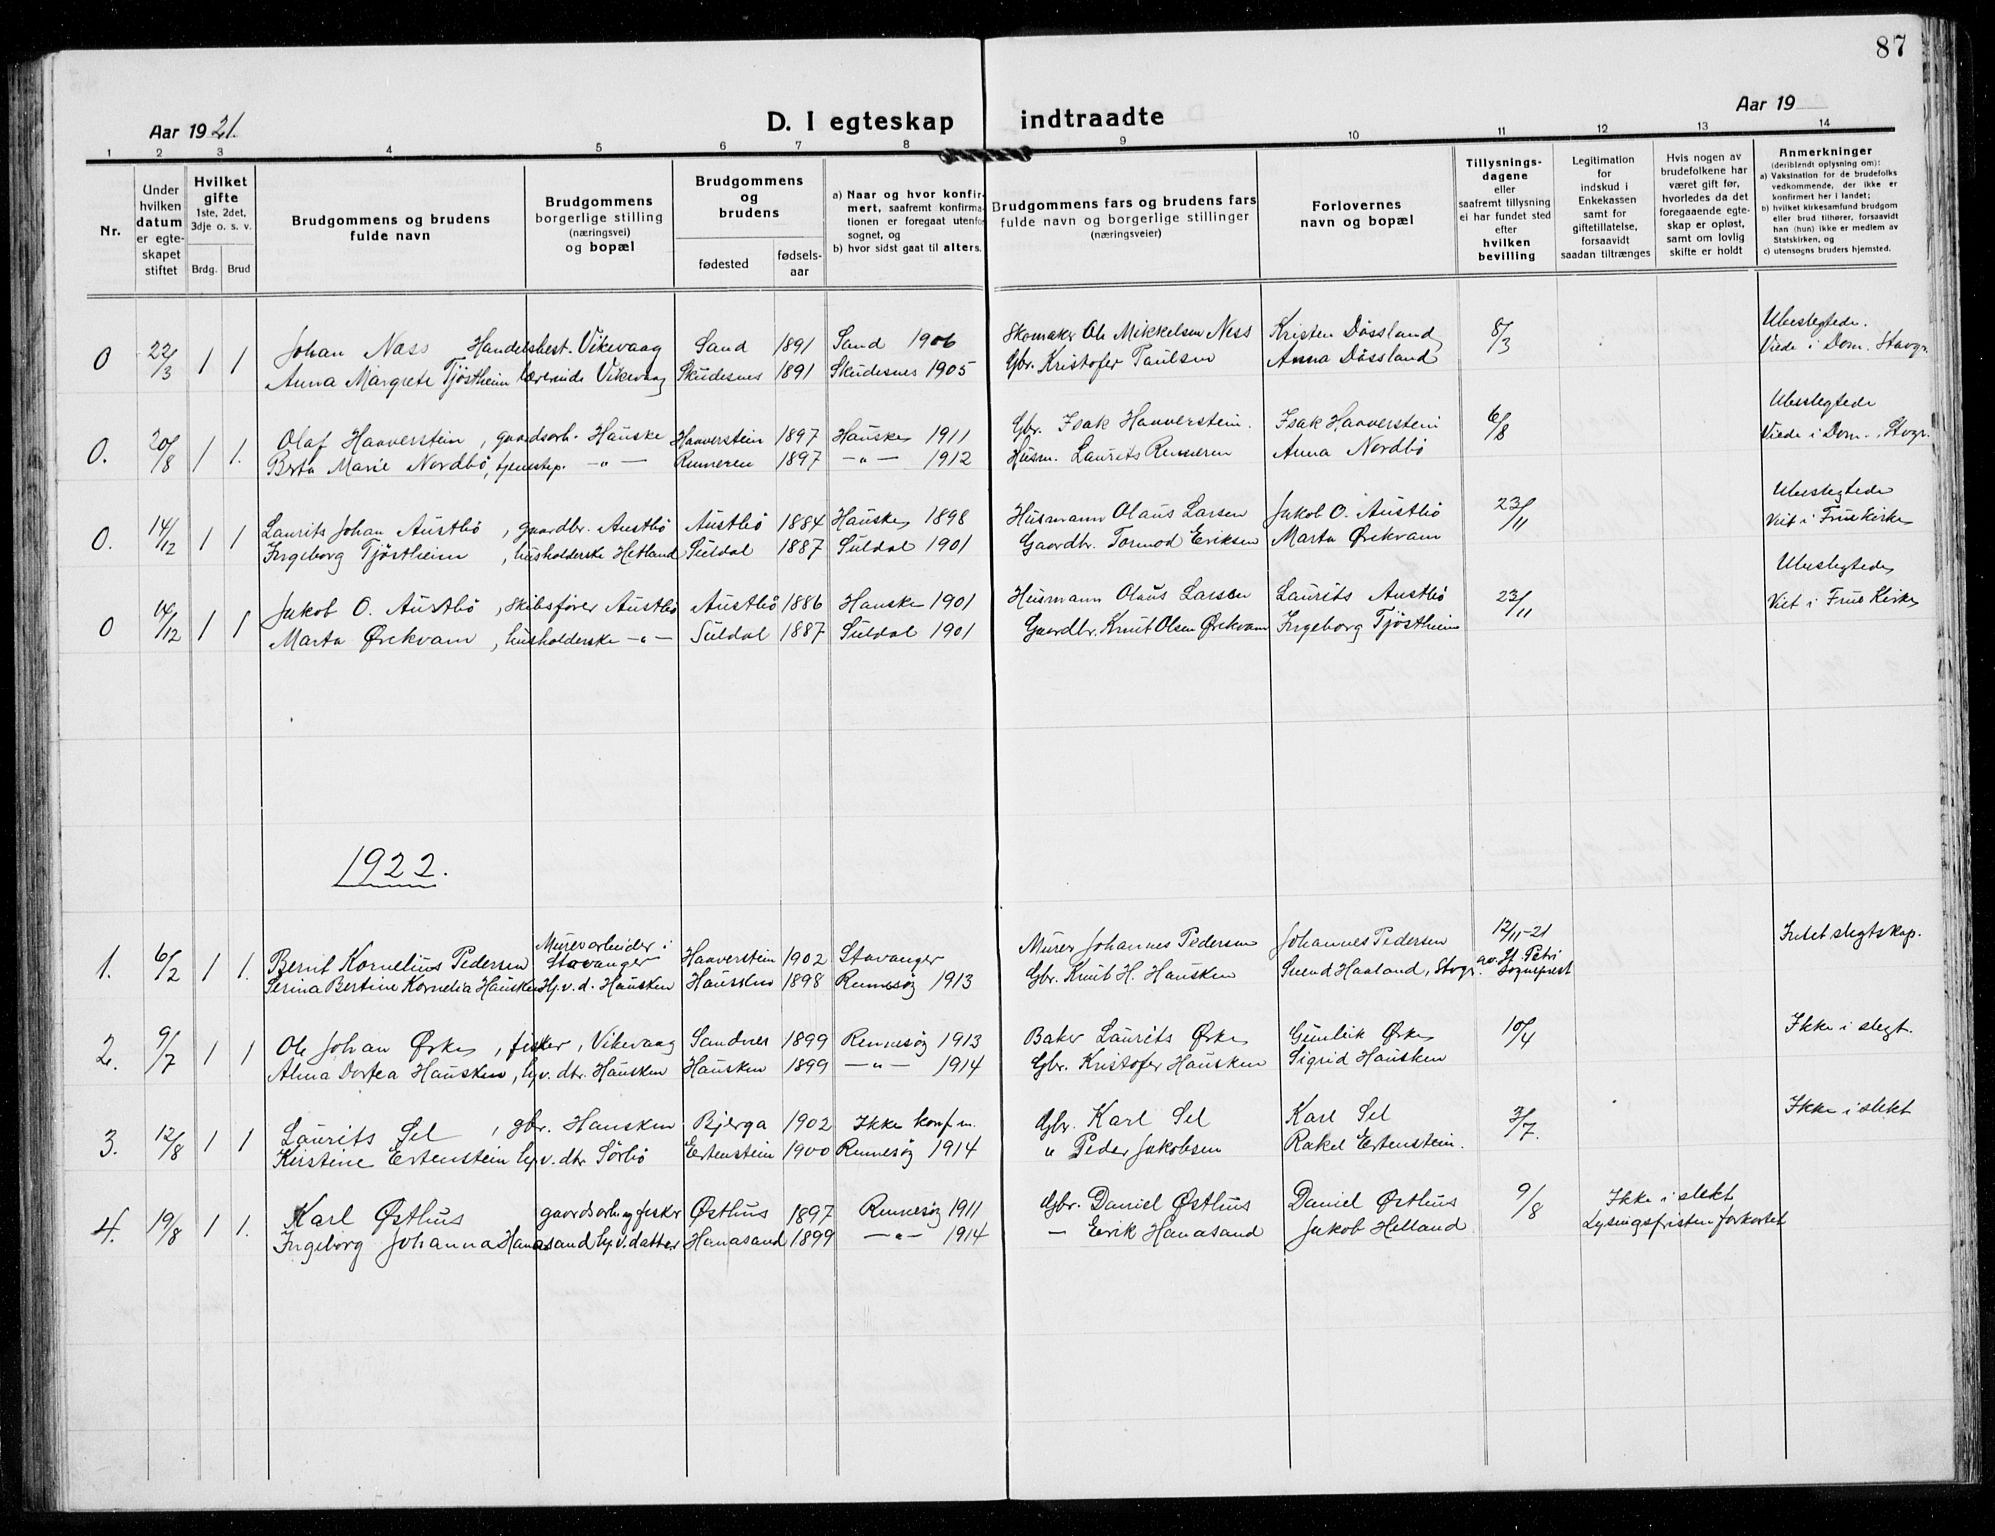 87
Aar 1921.
D. I egteskap indtraadte
Aar 19
1 2 3 4 5 6 7 8 9 10 11 12 13 14
Nr.
Under hvilken datum er egteskapet stiftet
Hvilket gifte
1ste, 2det, 3dje o. s. v.
Brdg. Brud
Brudgommens og brudens fulde navn
Brudgommens borgerlige stilling (næringsvei) og bopæl
Brudgommens og brudens
fødested
fødselsaar
a) Naar og hvor konfirmert, saafremt konfirmationen er foregaat utenfor sognet, og
b) hvor sidst gaat til alters.
Brudgommens fars og brudens fars fulde navn og borgerlige stillinger (næringsveier)
Forlovernes navn og bopæl
Tillysningsdagene eller saafremt tillysning ei har fundet sted efter hvilken bevilling
Legitimation for indskud i Enkekassen samt for giftetillatelse, forsaavidt saadan tiltrænges
Hvis nogen av brudefolkene har været gift før, hvorledes da det foregaaende egteskap er opløst, samt om lovlig skifte er holdt
Anmerkninger
(deriblendt oplysning om):
a) Vaksination for de brudefolks vedkommende, der ikke er konfirmert her i landet;
b) hvilket kirkesamfund brudgom eller brud tilhører, forsaavidt han (hun) ikke er medlem av Statskirken, og
c) utensogns bruders hjemsted.
0 22/3 1 1 Johan Næss Handelsbest. Vikevaag Sand 1891 Sand 1906 Skomaker Ole Mikkelsen Ness Kristen Døssland 8/3 Ubeslegtede.
Anna Margrete Tjøstheim lærerinde Vikevaag Skudesnes 1891 Skudesnes 1905 Gbr. Kristofer Paulsen Anna Døssland Viede i Dom. Stavgr.
0. 20/8 1 1. Olaf Haaverstein, gaardsarb. Hauske Haaverstein 1897 Hauske 1911 Gbr. Isak Haaverstein. Isak Haaverstein 6/8 Ubeslegtede
Berta Marie Nordbø, tjenestep. -"- Renneren 1897 -"- 1912 Husm. Laurits Renneren Anna Nordbø Viede i Dom. Stvgr.
0. 14/12 1 1 Laurits Johan Austbø, gaardbr. Austbø Austbø 1884 Hauske 1898 Husmann Olaus Larsen Jakob O. Austbø 23/11 Ubeslegtede
Ingeborg Tjøstheim, husholderske Hetland Suldal 1887 Suldal 1901 Gaardbr. Tormod Eriksen Marta Ørekvam Viet i Frue Kirke
0 14/12 1 1 Jakob O. Austbø, skibsfører Austbø Austbø 1886 Hauske 1901 Husmann Olaus Larsen Laurits Austbø 23/11 Ubeslegtede
Marta Ørekvam, husholderske -"- Suldal 1887 Suldal 1901 Gaardbr. Knut Olsen Ørekvam Ingeborg Tjøstheim Viet i Frue Kirke
1922.
1. 6/2 1 1. Bernt Kornelius Pedersen Murerarbeider i Stavanger Haaverstein 1902 Stavanger Murer Johannes Pedersen Johannes Pedersen 12/11-21 av St. Petri Sogneprest Intet slegtskap.
Serina Bertine Kornelia Hausken Hj.v.d. Hausken Hausken 1898 Rennesøy 1913 Gbr. Knut H. Hausken Svend Haaland, Stvgr.
2. 9/7 1 1 Ole Johan Ørke, fisker, Vikevaag Sandnes 1899 Rennesøy 1913 Baker Laurits Ørke Gunleik Ørke 10/4 Ikke i slegt.
Alma Dortea Hausken, hjv. dtr. Hausken Hausken 1899 -"- 1914 Gbr. Kristofer Hausken Sigrid Hausken
3. 12/8 1 1 Laurits Sel, gbr. Hausken Bjerga 1902 Ikke konf m. Gbr. Karl Sel Karl Sel 3/7. Ikke i slekt
Kirstine Ertenstein hjv. dtr Sørbø Ertenstein 1900 Rennesøy 1914 " Peder Jakobsen Rakel Ertenstein.
4. 19/8 1 1. Karl Østhus gaardsarb og fisker Østhus 1897 Rennesøy 1911 Gbr. Daniel Østhus Daniel Østhus 9/8 Ikke i slekt
Ingeborg Johanna Hanasand hjv. datter Hanasand 1899 -"- 1914 - Erik Hanasand Jakob Helland Lysingsfristen forkortet